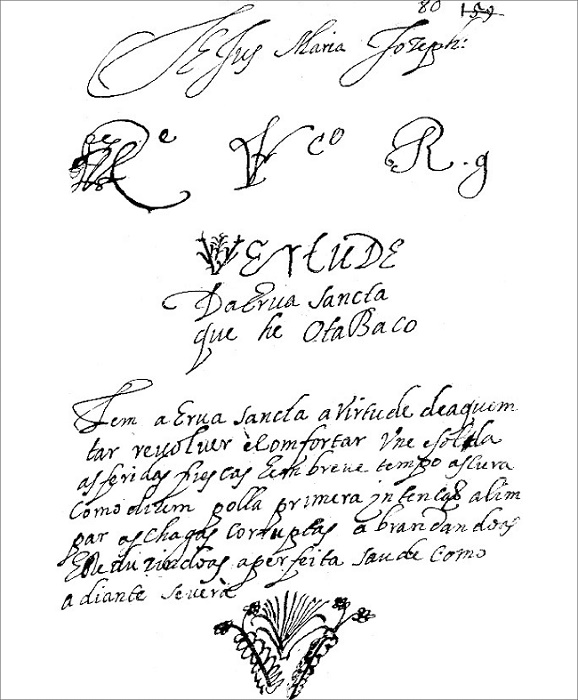 80 159
JESus Maria Jozeph:
Re Vco R.g
VERtUDE
Da Erua sancta
que he OtaBaco
Tem a Erua sancta a virtude deaquem
tar reuoluer e Comfortar Vne esolda
asferidas frescas Eem breue tempo ascura
Como dizem polla primera jntençaõ alim
par aschagas corruptas abrandandoas
Ereduzindoas aperfeita saude como
adiante severà